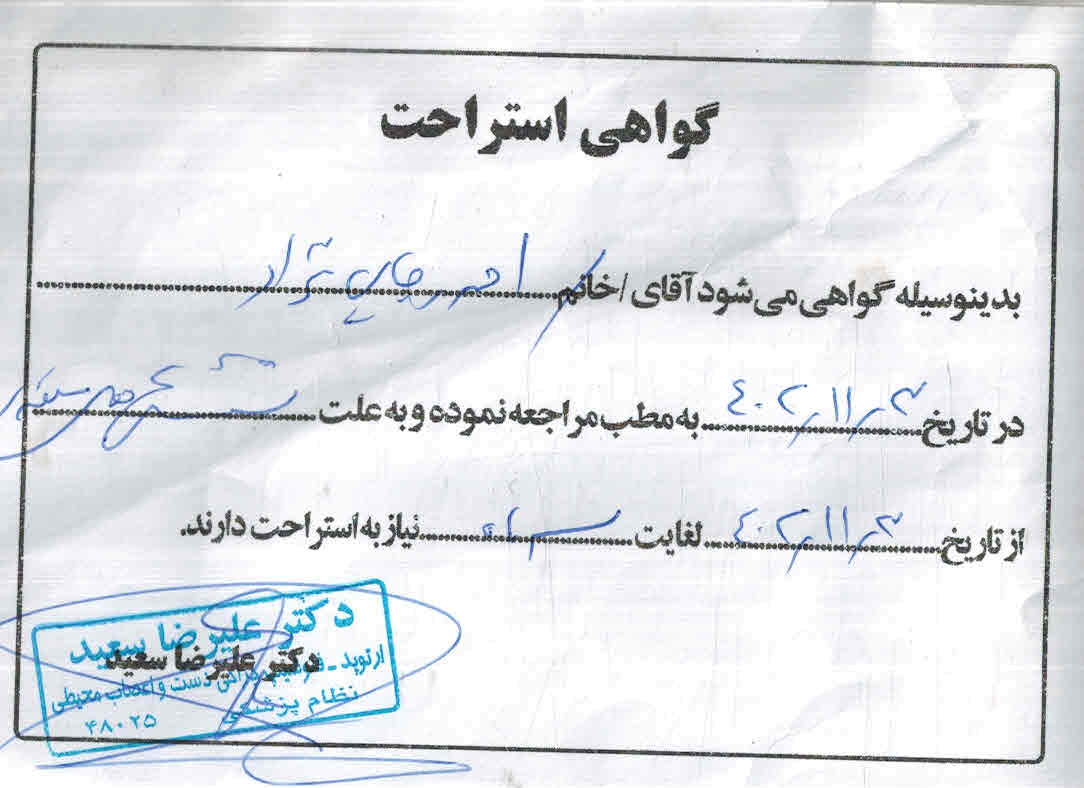 گواهی استراحت
بدینوسیله گواهی می شود آقای / خانم احمد ........ نژاد
در تاریخ ۴۰۲٫۱۱٫۳ به مطب مراجعه نموده و به علت
از تاریخ ۴۰۲٫۱۱٫۳ لغایت ........ نیاز به استراحت دارند.
دکتر علیرضا سعید
دکتر علیرضا سعید
ارتوپد - دست و اعصاب محیطی
نظام پزشکی
۴۸۰۲۵